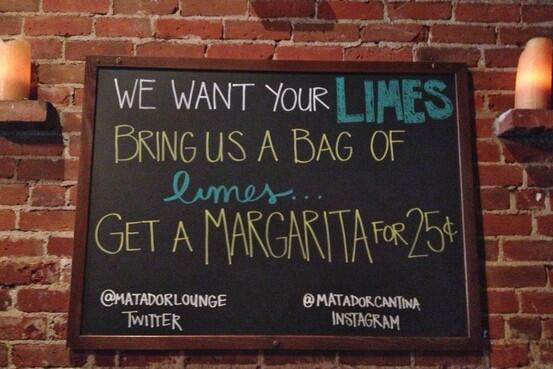 WE WANT YOUR LIMES
BRING US A BAG OF
limes...
GET A MARGARITA FOR 25¢
@MATADORLOUNGE
TWITTER
@MATADORCANTINA
INSTAGRAM